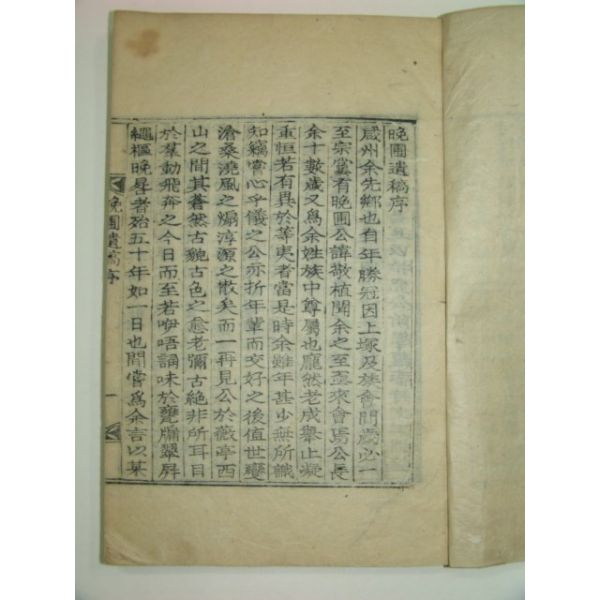 晩圃遺稿序
咸州余先鄕也自年勝冠因上塚及族會間歲必一
至宗黨有晩圃公諱敬植聞余之至盃來會焉公長
余十數歲又爲余姓族中尊屬也龐然老成擧止凝
重恒若有異於等夷者當是時余雖年甚少無所識
知竊嘗心乎儀之公亦折年輩而交好之後值世變
滄桑澆風之煽淳源之散矣而一再見公於薇亭西
山之間其蒼然古貌古色之愈老彌古絶非所耳目
於羣動飛奔之今日而至若咿唔誦味於甕牖翠屛
繩樞晩晷者殆五十年如一日也間嘗爲余言以某
晩圃遺稿序
一